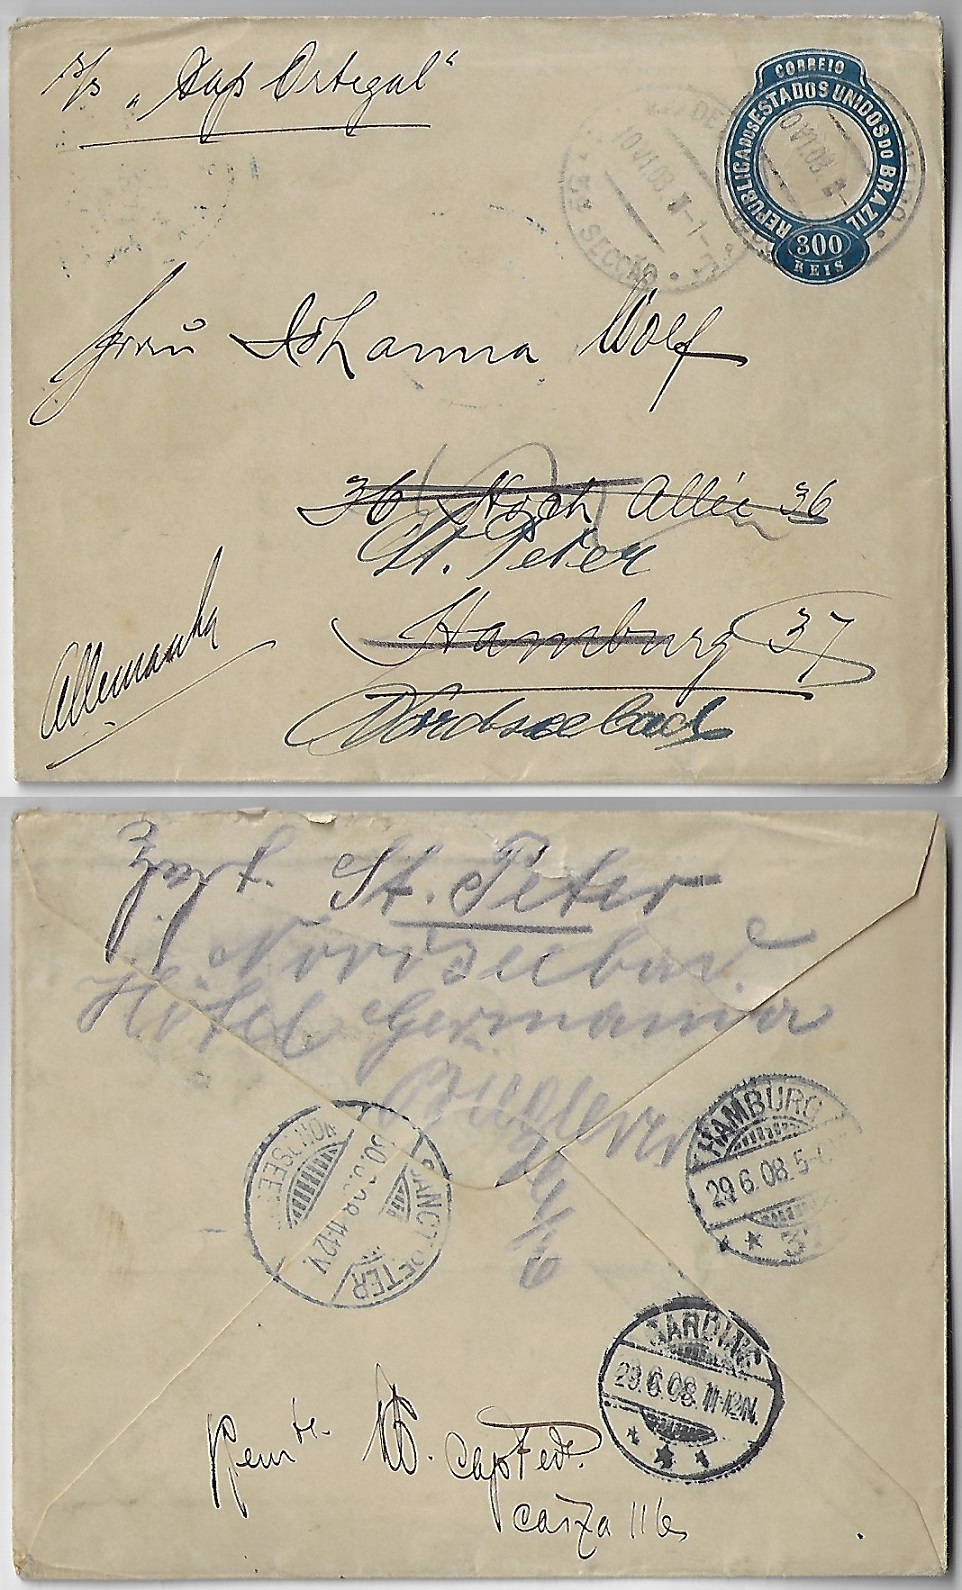 p/s „Cap Ortegal“
CORREIO
REPUBLICA DOS ESTADOS UNIDOS DO BRAZIL
300
REIS
10 VI 08
5ª SECÇÃO
Frau Johanna Wolf
36 Hoch Allée 36
St. Peter
Hamburg 37
Nordseebad
Allemanha
Zzt. St. Peter
Nordseebad
Hôtel Germania
SANCT PETER
30.6.08.11-12V.
NORDSEEB
HAMBURG
29.6.08.5-6
* * 37
GARDING
29.6.08.11-12N.
* * *
Remte. W. Cap Fedl.
caixa 116